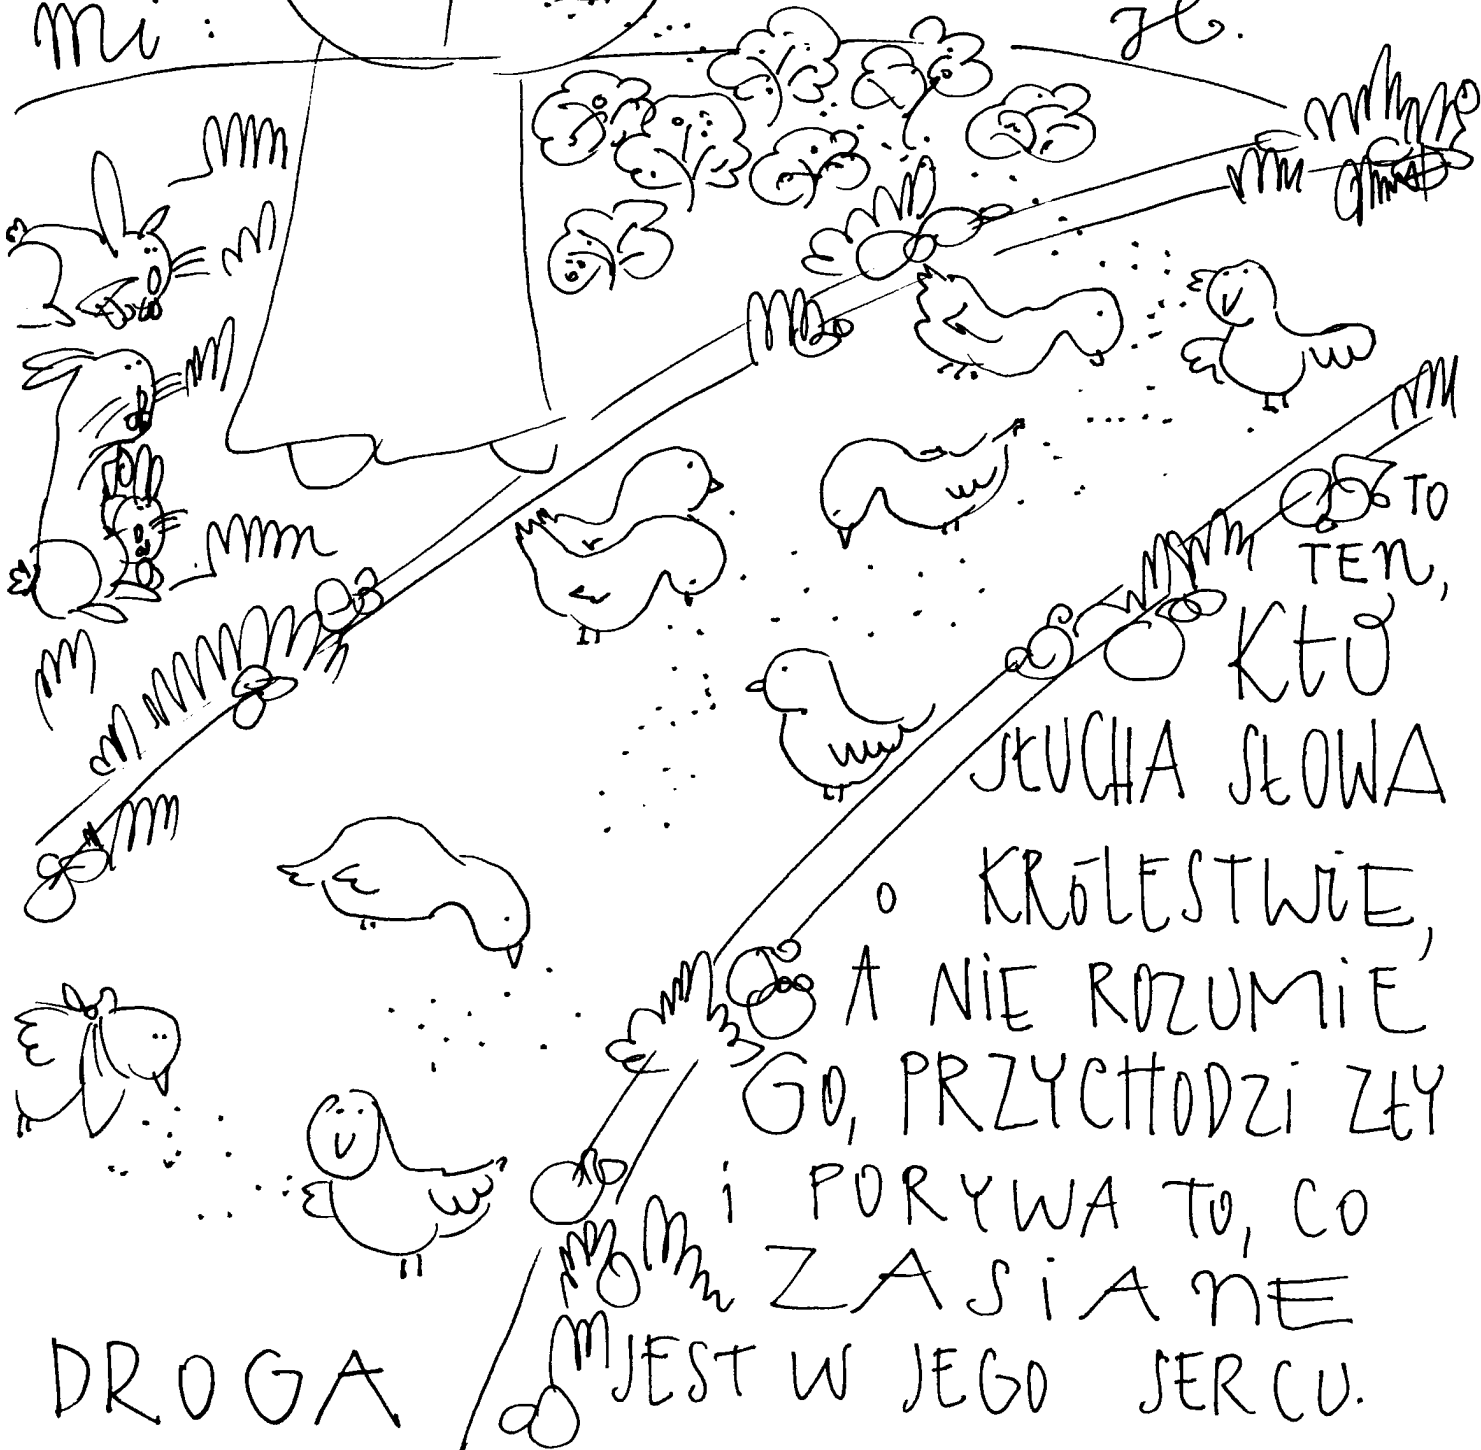 mi :
TO
TEN,
KTÓ
SŁUCHA SŁOWA
O KRÓLESTWIE,
A NIE ROZUMIE
GO, PRZYCHODZI ZŁY
i PORYWA TO, CO
ZASIANE
JEST W JEGO SERCU.
DROGA